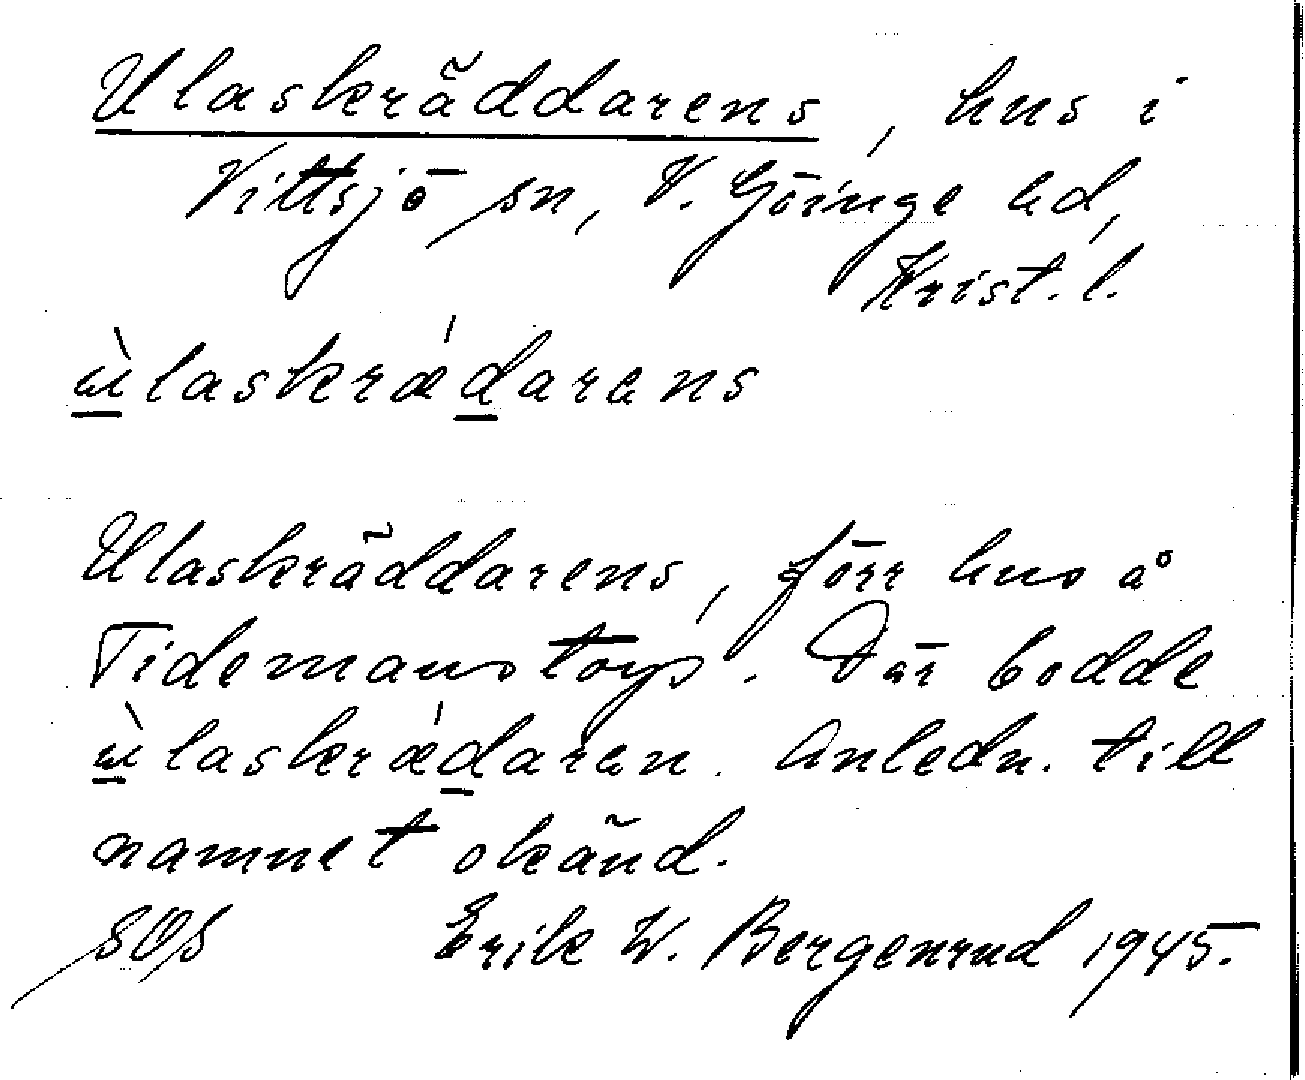 Ulaskräddarens, hus i
Vittsjö sn, V. Göinge hd,
Krist. l.
ùlaskræ´darens
Ulaskräddarens, förr hus å
Tidemanstorp. Där bodde
ùlaskræ´daren. Anledn. till
namnet okänd.
SOS Erik W. Bergenrud 1945.